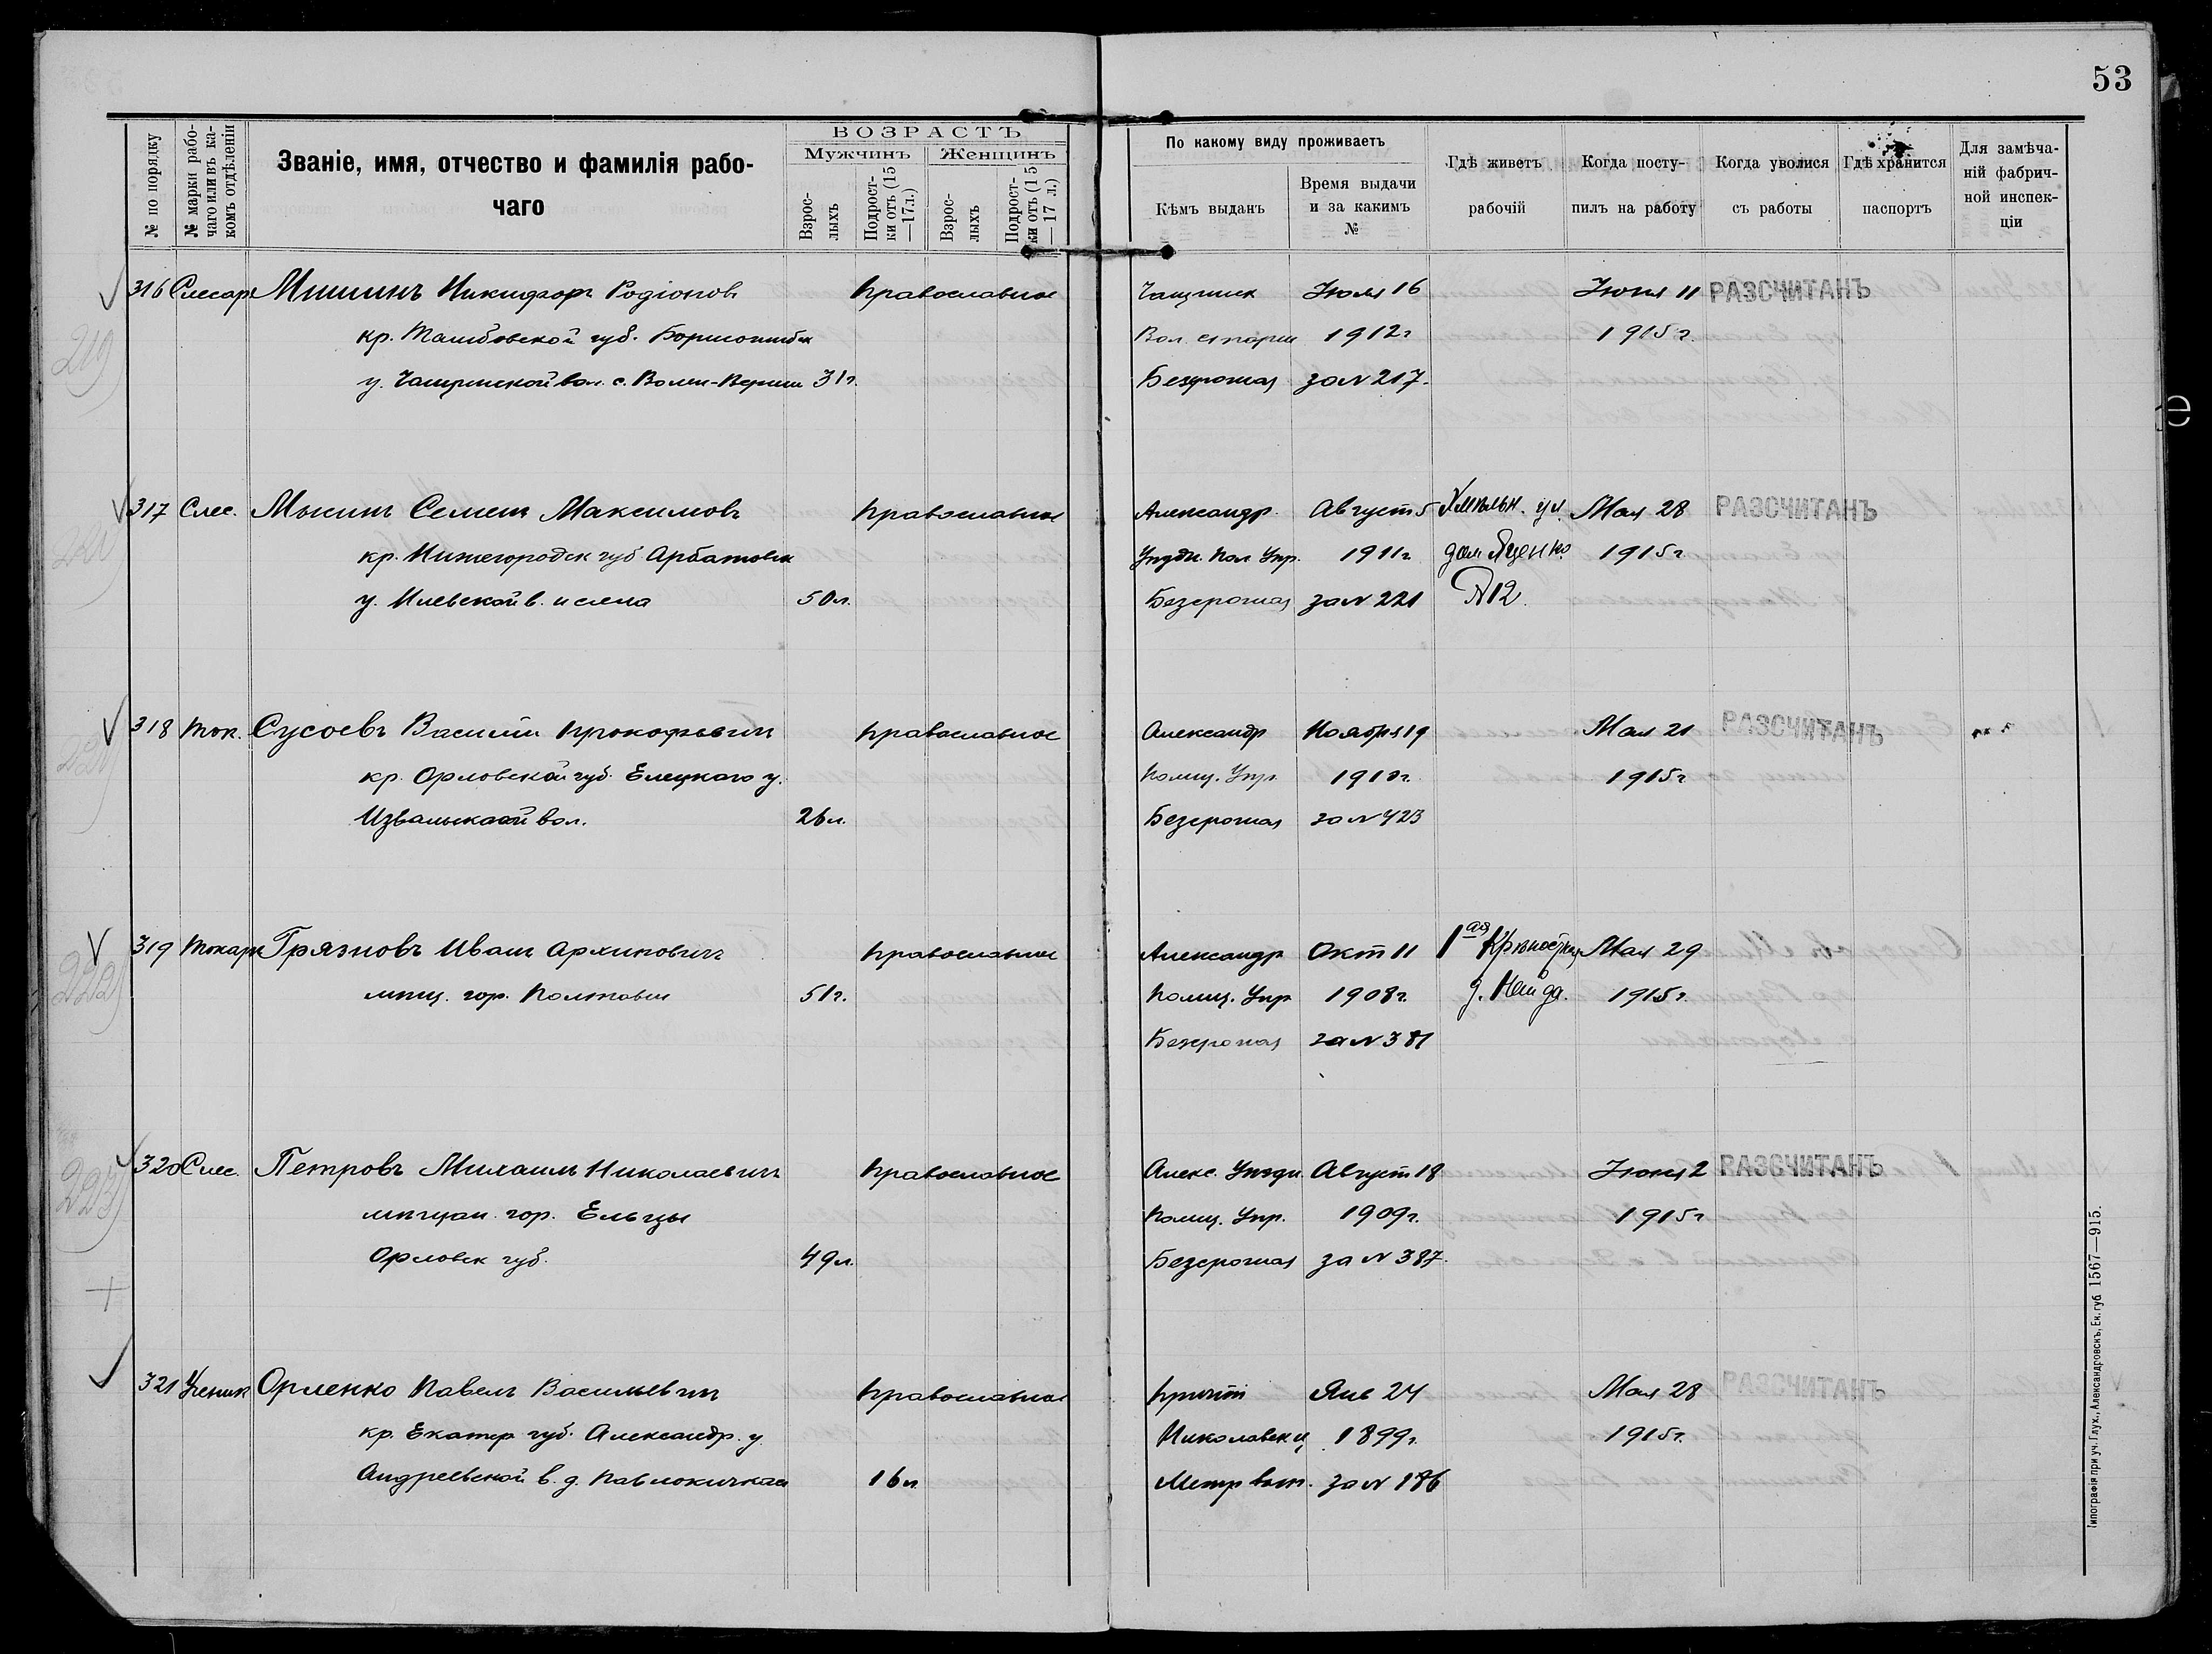 53
№ по порядку
№ марки рабо-
чаго или въ ка-
комъ отдѣленіи
Званіе, имя, отчество и фамилія рабо-
чаго
ВОЗРАСТЪ
Мужчинъ
Женщинъ
Взрос-
лыхъ
Подрост-
ки отъ (15
—17 л.)
Взрос-
лыхъ
Подрост-
ки отъ (15
— 17 л.)
По какому виду проживаетъ
Кѣмъ выданъ
Время выдачи
и за какимъ
№
Гдѣ живетъ
рабочій
Когда посту-
пилъ на работу
Когда уволися
съ работы
Гдѣ хранится
паспортъ
Для замѣча-
ній фабрич-
ной инспек-
ціи
316 Слесарь Мишинъ Никифоръ Родіоновъ Православное Іюля 16 Іюня 11 РАЗСЧИТАНЪ
219
кр. Тамбовской губ. Вол. 1912 г. 1915 г.
у. вол. с. 31 г. Безсрочная за № 217.
317 Слес. Семенъ Максимовъ Православное Александр. Август 5 ул. Мая 28 РАЗСЧИТАНЪ
220
кр. Нижегородск губ. Пол. Упр. 1911 г. дом Яценко 1915 г
у. Илевской в. и села 50 л. Безсрочная за № 221 № 12.
318 Ток. Сусоевъ Василій Прокофьевич Православное Александр Ноября 19 Мая 21 РАЗСЧИТАНЪ
221
кр. Орловской губ. Елецкаго у. Полиц. Упр. 1910 г. 1915 г
вол. 26 л. Безсрочная за № 423
319 Токарь Грязновъ Иванъ Архиповичъ Православное Александр Окт 11 1ая Мая 29
222
мѣщ. гор. Полтавы 51 г. Полиц. Упр 1908 г. д. Найда. 1915 г.
Безсрочная за № 381
320 Слес. Петровъ Михаилъ Николаевичъ Православное Алекс. Уѣздн. Август 18 Іюня 2 РАЗСЧИТАНЪ
223
мѣщан. гор. Ельцы Полиц. Упр. 1909 г. 1915 г
Орловск губ. 49 л. Безсрочная за № 387.
321 Ученик Орленко Павелъ Васильевич Православное Причт Янв 24 Мая 28 РАЗСЧИТАНЪ
кр. Екатер губ. Александр. у. 1899 г. 1915 г.
Андреевской в. д. Павлокичкас 16 л за № 186
Типографія при уч. Глух., Александровскъ, Ек. губ. 1567—915.